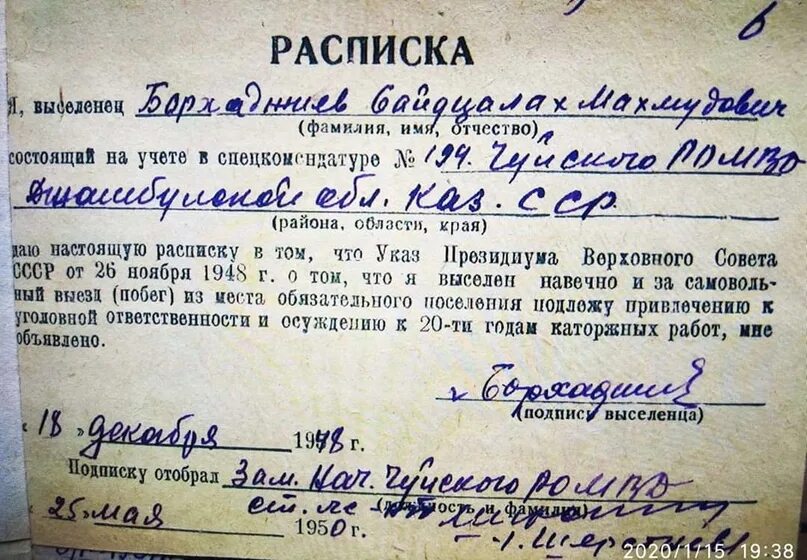 6
РАСПИСКА
Я, выселенец Борхаджиев Сайдцалах Махмудович
(фамилия, имя, отчество)
состоящий на учете в спецкомендатуре № 194. Чуйского РОМВД
Джамбулской обл. Каз. ССР
(района, области, края)
даю настоящую расписку в том, что Указ Президиума Верховного Совета
СССР от 26 ноября 1948 г. о том, что я выселен навечно и за самоволь-
ный выезд (побег) из места обязательного поселения подложу привлечению к
уголовной ответственности и осуждению к 20-ти годам каторжных работ, мне
объявлено.
(подпись выселенца)
« 18 » декабря 1948 г.
Подписку отобрал Зам. Нач. Чуйского РОМВД
ст. (должность и фамилия)
« 25 » мая 1950 г.
2020/1/15 19:38